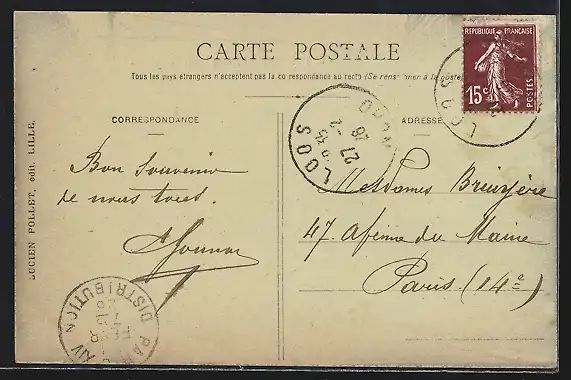 CARTE POSTALE
Tous les pays étrangers n'acceptent pas la correspondance au recto (Se renseigner à la poste)
RÉPUBLIQUE FRANÇAISE
15c
POSTES
CORRESPONDANCE
ADRESSE
LOOS
NORD
LOOS
Bon Souvenir
de nous tous.
Mesdames Bruyère
47. Avenue du Maine
Paris (14e)
PARIS XIV
DISTRIBUTION
LUCIEN POLLET, édit. LILLE.